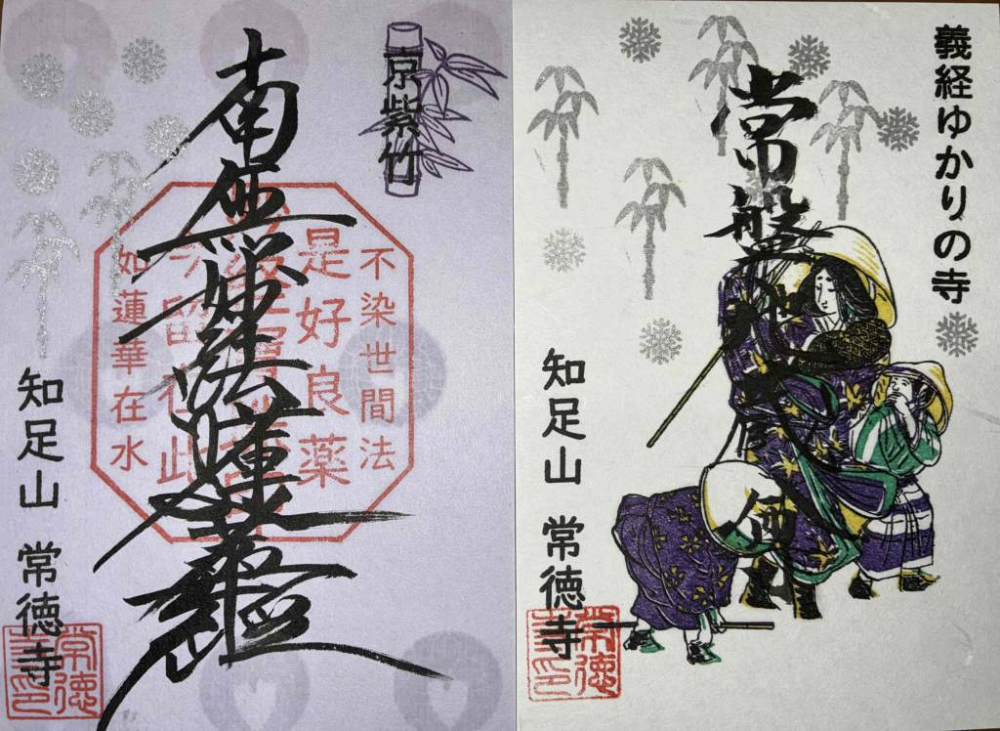 京紫竹
南無妙法蓮華経
不染世間法
是好良薬
今留在此
如蓮華在水
知足山 常徳寺
常徳寺印
義経ゆかりの寺
常盤地
知足山 常徳寺
常徳寺印